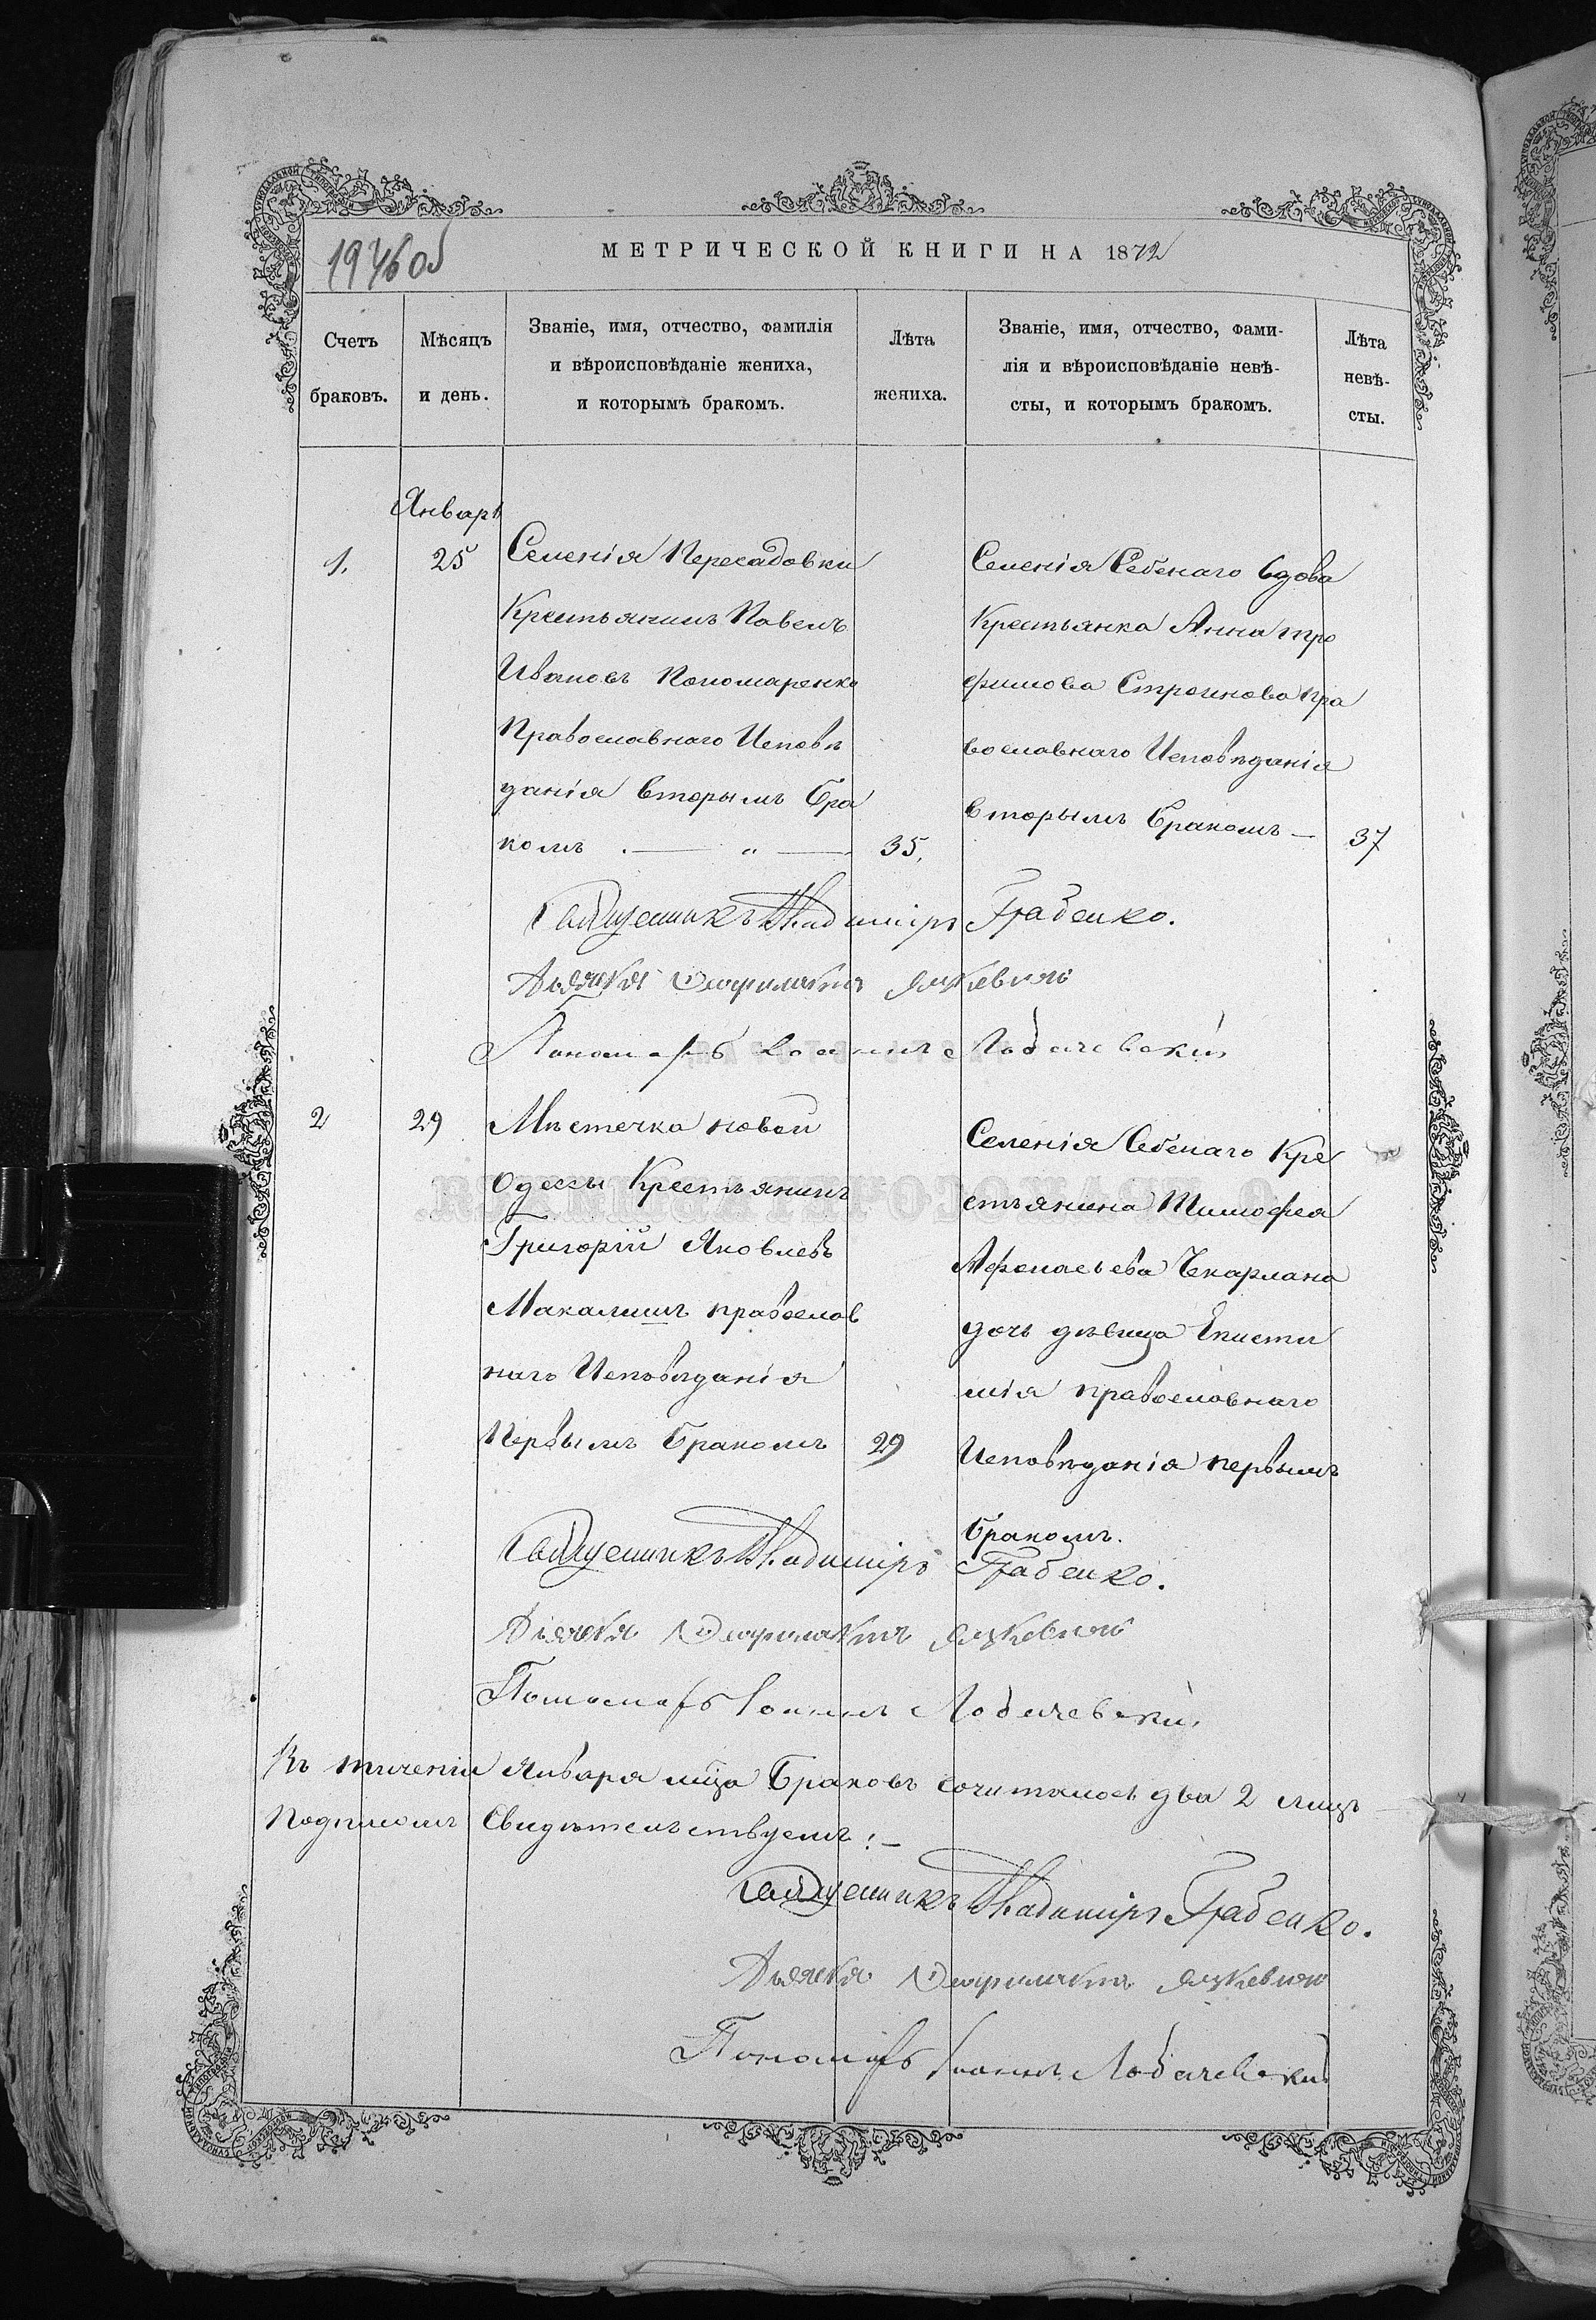 19 об
МЕТРИЧЕСКОЙ КНИГИ НА 1872
Счетъ браковъ.
Мѣсяцъ и день.
Званіе, имя, отчество, фамилія
и вѣроисповѣданіе жениха,
и которымъ бракомъ.
Лѣта жениха.
Званіе, имя, отчество, фами-
лія и вѣроисповѣданіе невѣ-
сты, и которымъ бракомъ.
Лѣта невѣ-
сты.
Январь
1. 25
Селенія Пересадовки
Крестьянинъ Павелъ
Ивановъ Пономаренко
Православнаго Исповѣ
данія вторымъ бра
комъ . — „ — 35.
Селенія Себенаго вдова
Крестьянка Анна Тро
фимова Строинова Пра
вославнаго Исповѣданія
вторымъ бракомъ — 37
Священникъ Владиміръ Грабенко.
Дьячекъ Феофилактъ Яцкевичъ
Пономарь Іоаннъ Лобачевскій
2 29
Мѣстечка новой
Одессы Крестьянинъ
Григорій Яковлевъ
Макалишъ православ
наго Исповѣданія
Первымъ бракомъ 29
Селенія Себенаго Кре
стьянина Тимофея
Афонасьева Чекармана
дочь дѣвица Еписти
мія православнаго
Исповѣданія первымъ
бракомъ.
Священникъ Владиміръ Грабенко.
Дьячекъ Феофилактъ Яцкевичъ
Пономарь Іоаннъ Лобачевскій
Въ теченіи Января мѣца Браковъ сочиталось два 2 лицъ —
Подписомъ Свидѣтельствуемъ: —
Священникъ Владиміръ Грабенко.
Дьячекъ Феофилактъ Яцкевичъ
Пономарь Іоаннъ Лобачевскій